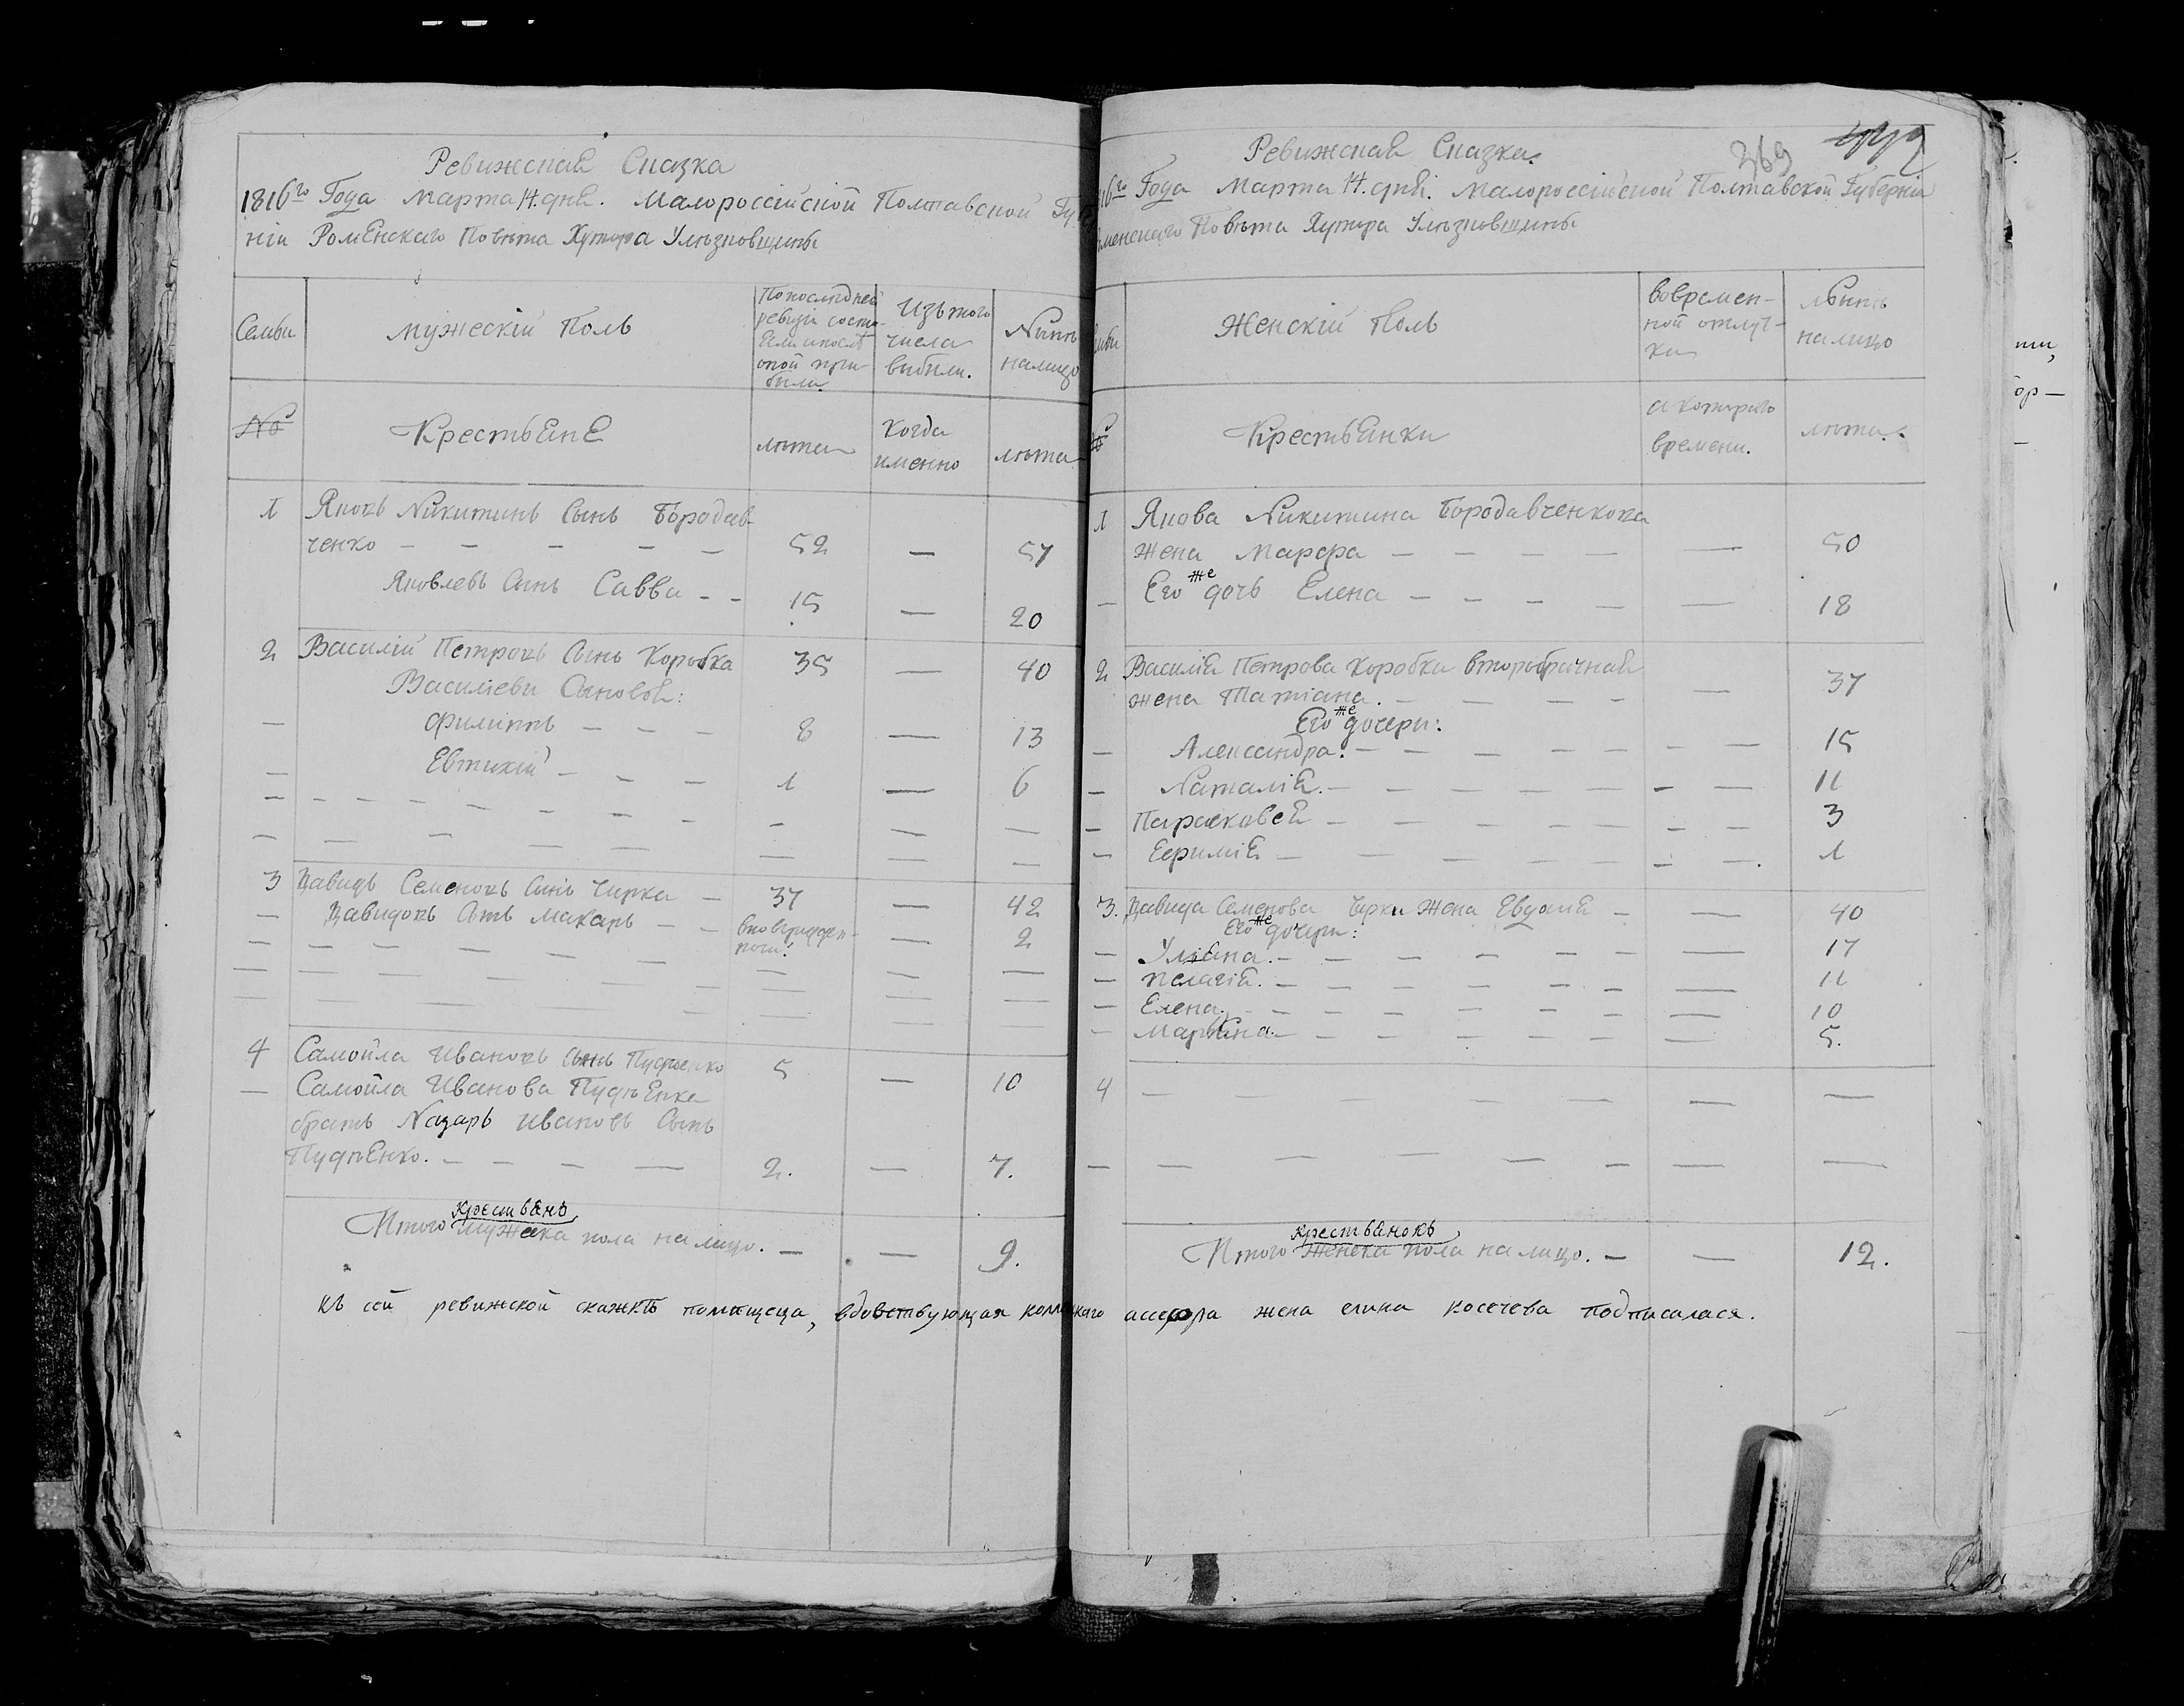 Ревижская Сказка
1816го Года Марта 14. дня. Малороссійской Полтавской Губер
ніи Роменского Повѣта Хутора Улѣзковщины
Семьи
мужескій Полъ
По последней ревизіи состо-
яли и после
оной при-
были.
Изъ того
числа
выбыли.
Нынѣ
налицо
№
Крестьяне
лѣта
Когда
именно
лѣта
1 Яковъ Никитинъ сынъ Бородав-
ченко — — — — — 52 — 57
Яковлевъ сынъ Савва - - 15 — 20
2 Василій Петровъ сынъ Коробка 35 — 40
Василіеви Сыновья:
— Филиппъ — — — 8 — 13
— Евтихій — — — 1 — 6
3 Давидъ Семеновъ сынъ Чирка — 37 — 42
— Давидовъ сынъ Макаръ — — вновь рожден-
ной. — 2
4 Самойла Ивановъ сынъ Пудченко 5 — 10
— Самойла Иванова Пудченка
братъ Назаръ Ивановъ сынъ
Пудченко. — — — — 2. — 7.
крестьянъ
Итого мужеска пола налицо. — — 9.
Ревижская Сказка.
369
816го Года Марта 14. дня. Малороссійской Полтавской Губерніи
оменского Повѣта Хутора Улѣзковщины
Женскій Полъ
вовремен-
ной отлуч-
ки
Нынѣ
налицо
Крестьянки
с котораго
времени.
лѣта.
1 Якова Никитина Бородавченкока
жена Марфа — — — — — 50
— Его же дочь Елена — — — — — 18
2 Василія Петрова Коробки второбрачная
жена Татіана. — — — — — 37
Его же дочери:
— Александра. — — — — — — — 15
— Наталія. — — — — — — — 11
— Парасковея — — — — — — — 3
— Ефимія — — — — — — — 1
3. Давида Семенова Чирки жена Евдокія — — 40
Его же дочери:
— Уліяна. — — — — — — — 17
— Пелагія. — — — — — — — 11
— Елена. — — — — — — — 10
— Марьяна. — — — — — — — 5.
4 — — — — — — — —
— — — — — — — —
крестьянокъ
Итого женска пола налицо. — — 12.
къ сей ревижской скажкѣ помещеца, вдовствующая асесора жена елина косечева подписалася.